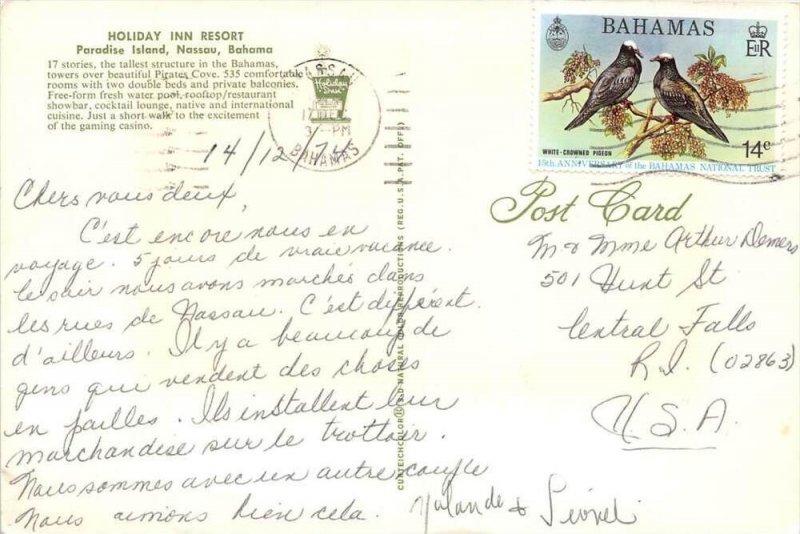 HOLIDAY INN RESORT
Paradise Island, Nassau, Bahama
17 stories, the tallest structure in the Bahamas,
towers over beautiful Pirates Cove. 535 comfortable
rooms with two double beds and private balconies.
Free-form fresh water pool, rooftop/restaurant
showbar, cocktail lounge, native and international
cuisine. Just a short walk to the excitement
of the gaming casino.
Holiday Inn
17
PM
BAHAMAS
14/12/74
Chers vous deux,
C'est encore nous en
voyage. 5 jours de vraie vacance.
le soir nous avons marchés dans
les rues de Nassau. C'est différent
d'ailleurs. Il y a beaucoup de
gens qui vendent des choses
en pailles. Ils installent leur
marchandise sur le trottoir.
Nous sommes avec un autre couple
Nous aimons bien cela. Yolande & Lionel
CURTEICHCOLOR® 3-D NATURAL COLOR REPRODUCTIONS (REG. U.S.A. PAT. OFF.)
BAHAMAS
EIIR
WHITE-CROWNED PIGEON
14c
15th ANNIVERSARY of the BAHAMAS NATIONAL TRUST
Post Card
M & Mme Arthur Demers
501 Hunt St
Central Falls
R.I. (02863)
U.S.A.